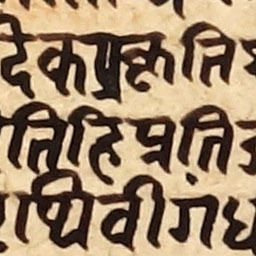 दिकप्रकृति
तिहिप्रति
पृथिवीगंध